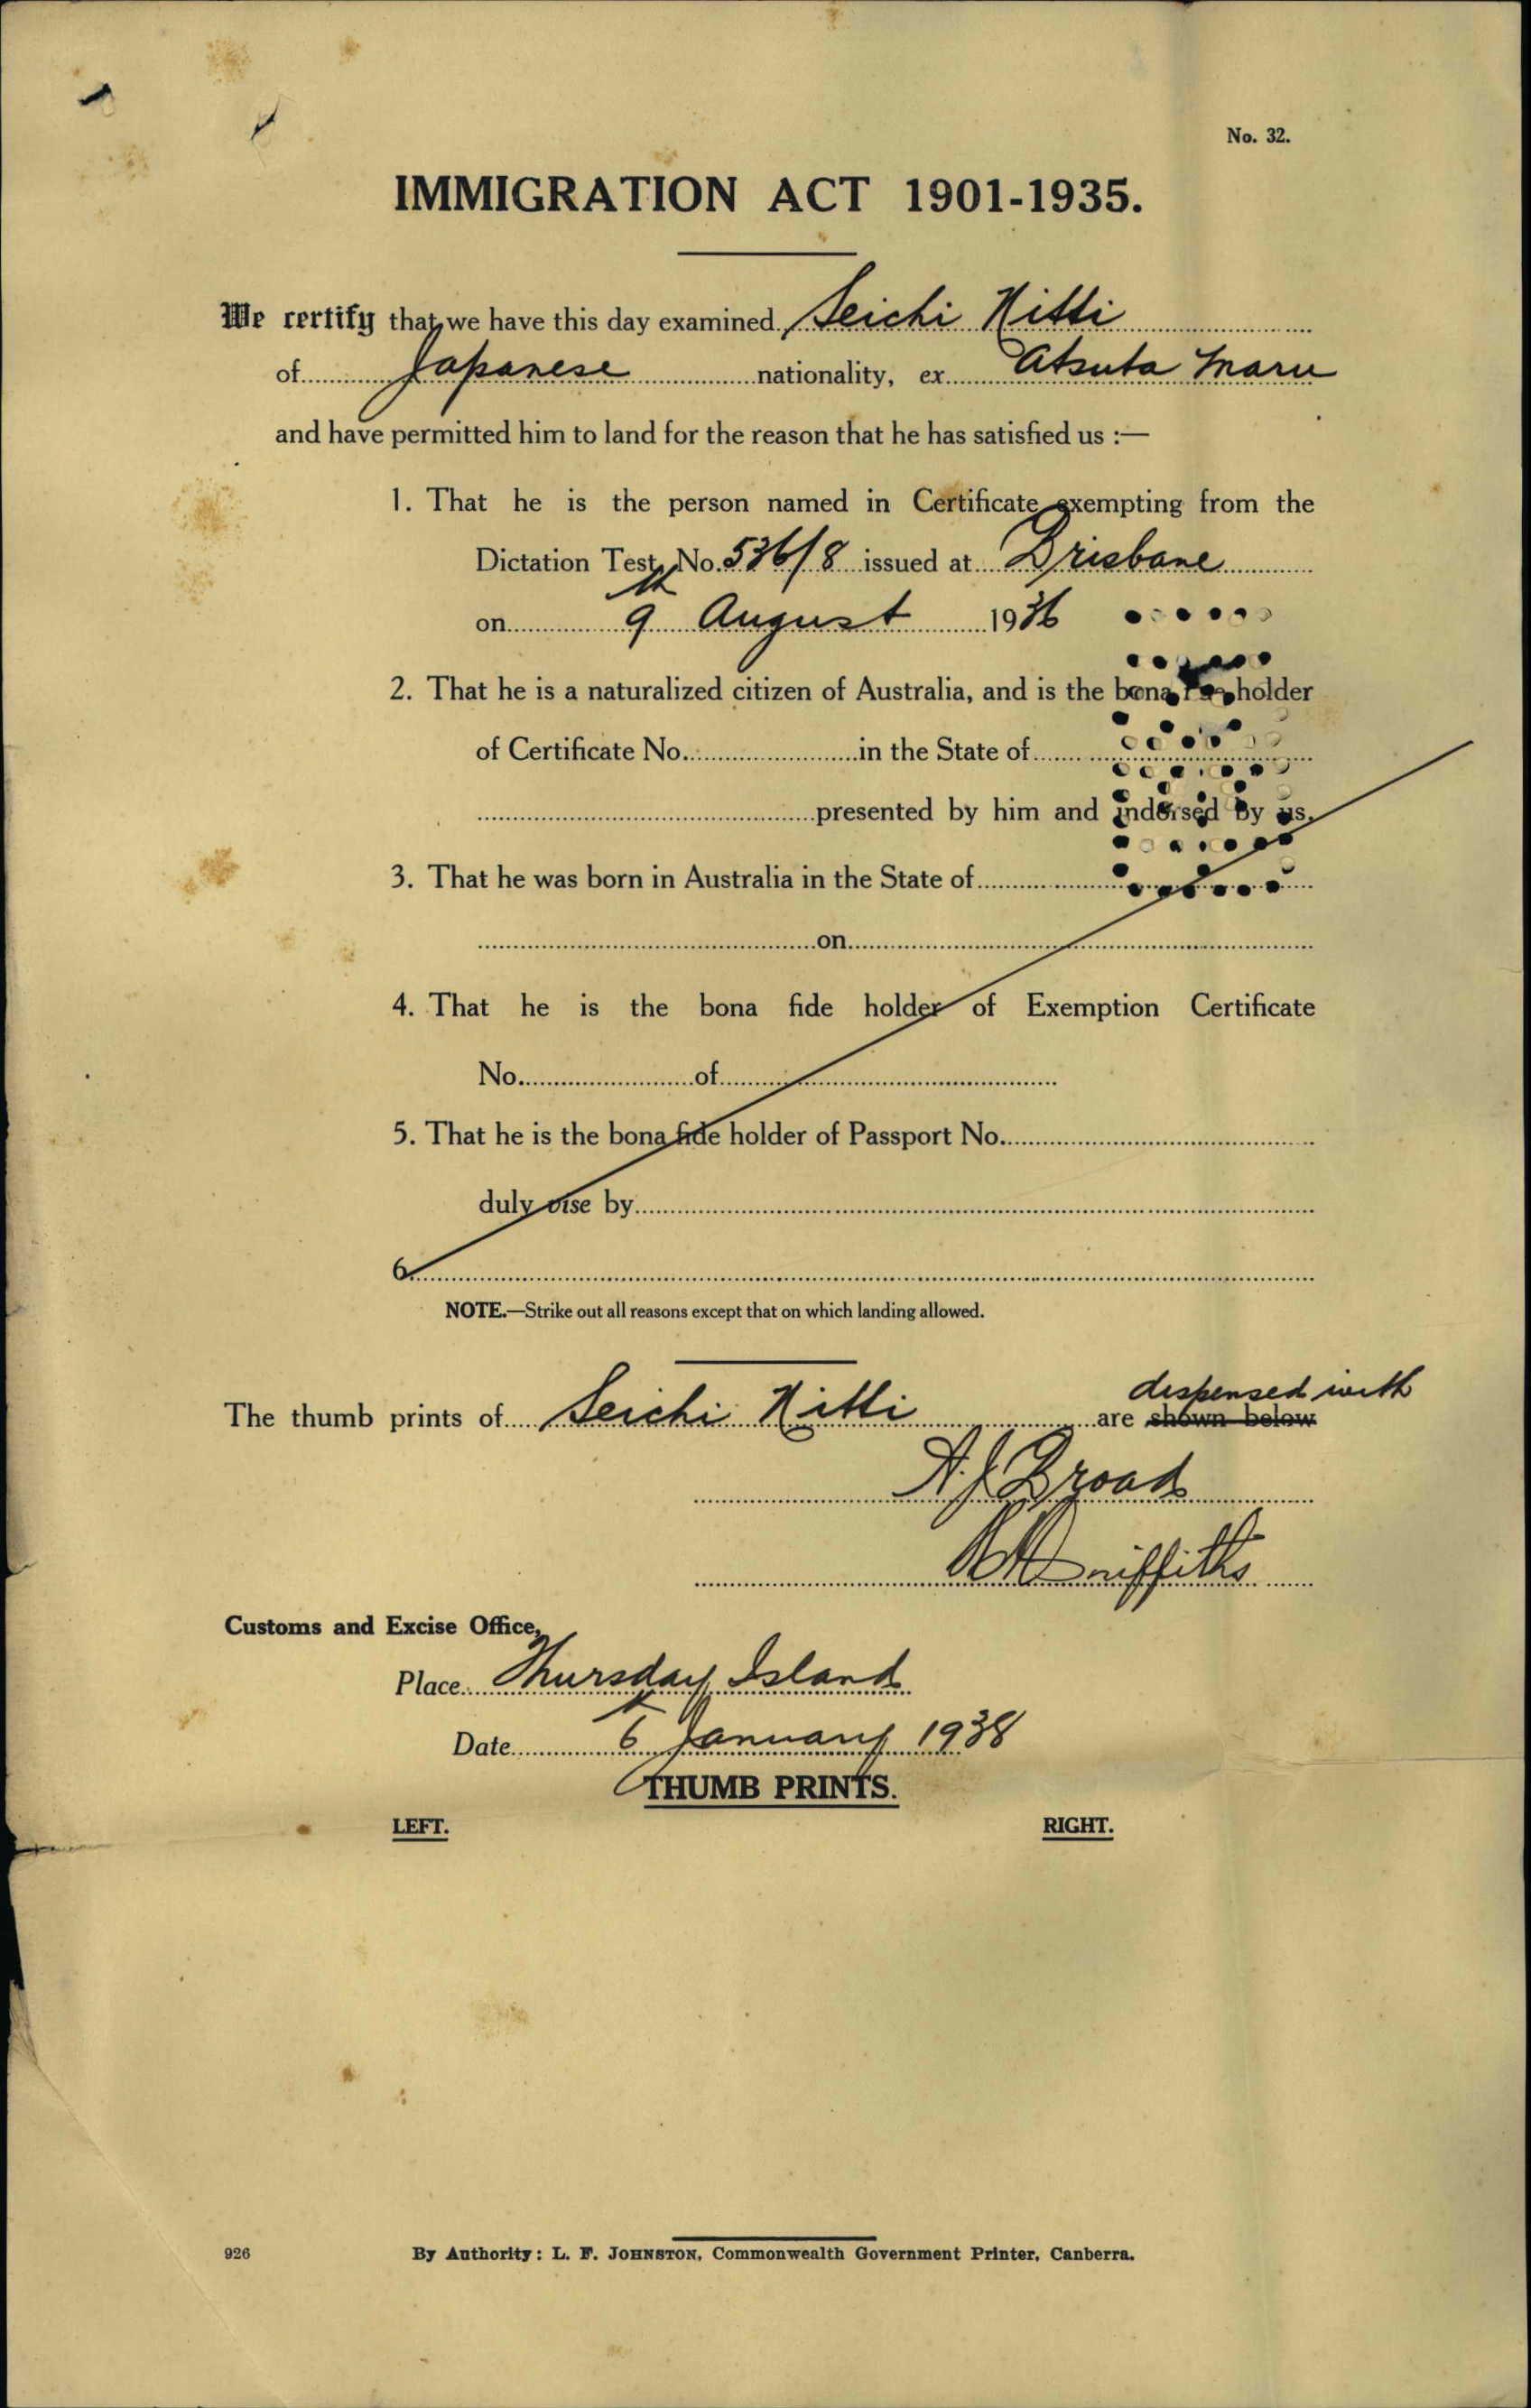 No. 32.
IMMIGRATION ACT 1901-1935.
We certify that we have this day examined Seichi Nitti
of Japanese nationality, ex Atsuta Maru
and have permitted him to land for the reason that he has satisfied us :—
1. That he is the person named in Certificate exempting from the
Dictation Test, No. 536/8 issued at Brisbane
on 9th August 1936
2. That he is a naturalized citizen of Australia, and is the bona holder
of Certificate No. in the State of
presented by him and indorsed by us.
3. That he was born in Australia in the State of
on
4. That he is the bona fide holder of Exemption Certificate
No. of
5. That he is the bona fide holder of Passport No.
duly vise by
6.
NOTE.—Strike out all reasons except that on which landing allowed.
dispensed with
The thumb prints of Seichi Nitti are shown below
Broad
Griffiths
Customs and Excise Office,
Place Thursday Island
Date 6 January 1938
THUMB PRINTS.
LEFT. RIGHT.
926 By Authority: L. F. JOHNSTON, Commonwealth Government Printer, Canberra.